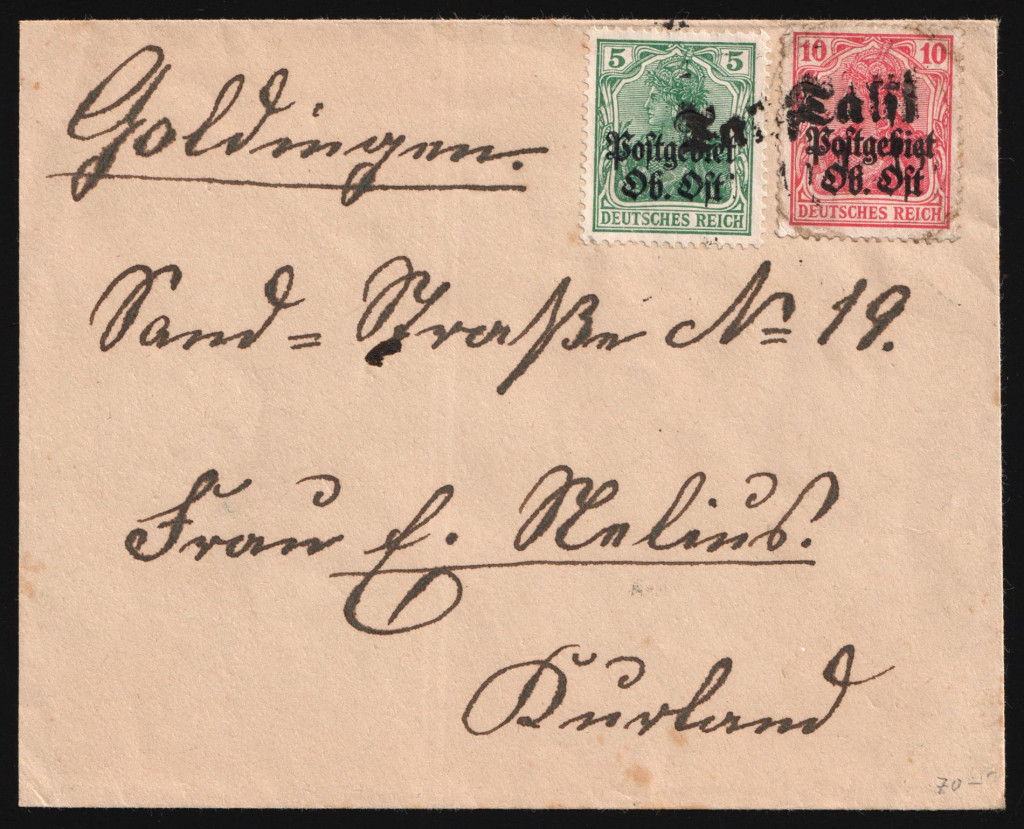 Goldingen.
5 5
Postgebiet
Ob. Ost
DEUTSCHES REICH
10 10
Postgebiet
Ob. Ost
DEUTSCHES REICH
Sand = Straße No 19.
Frau E. Nelius.
Kurland
70